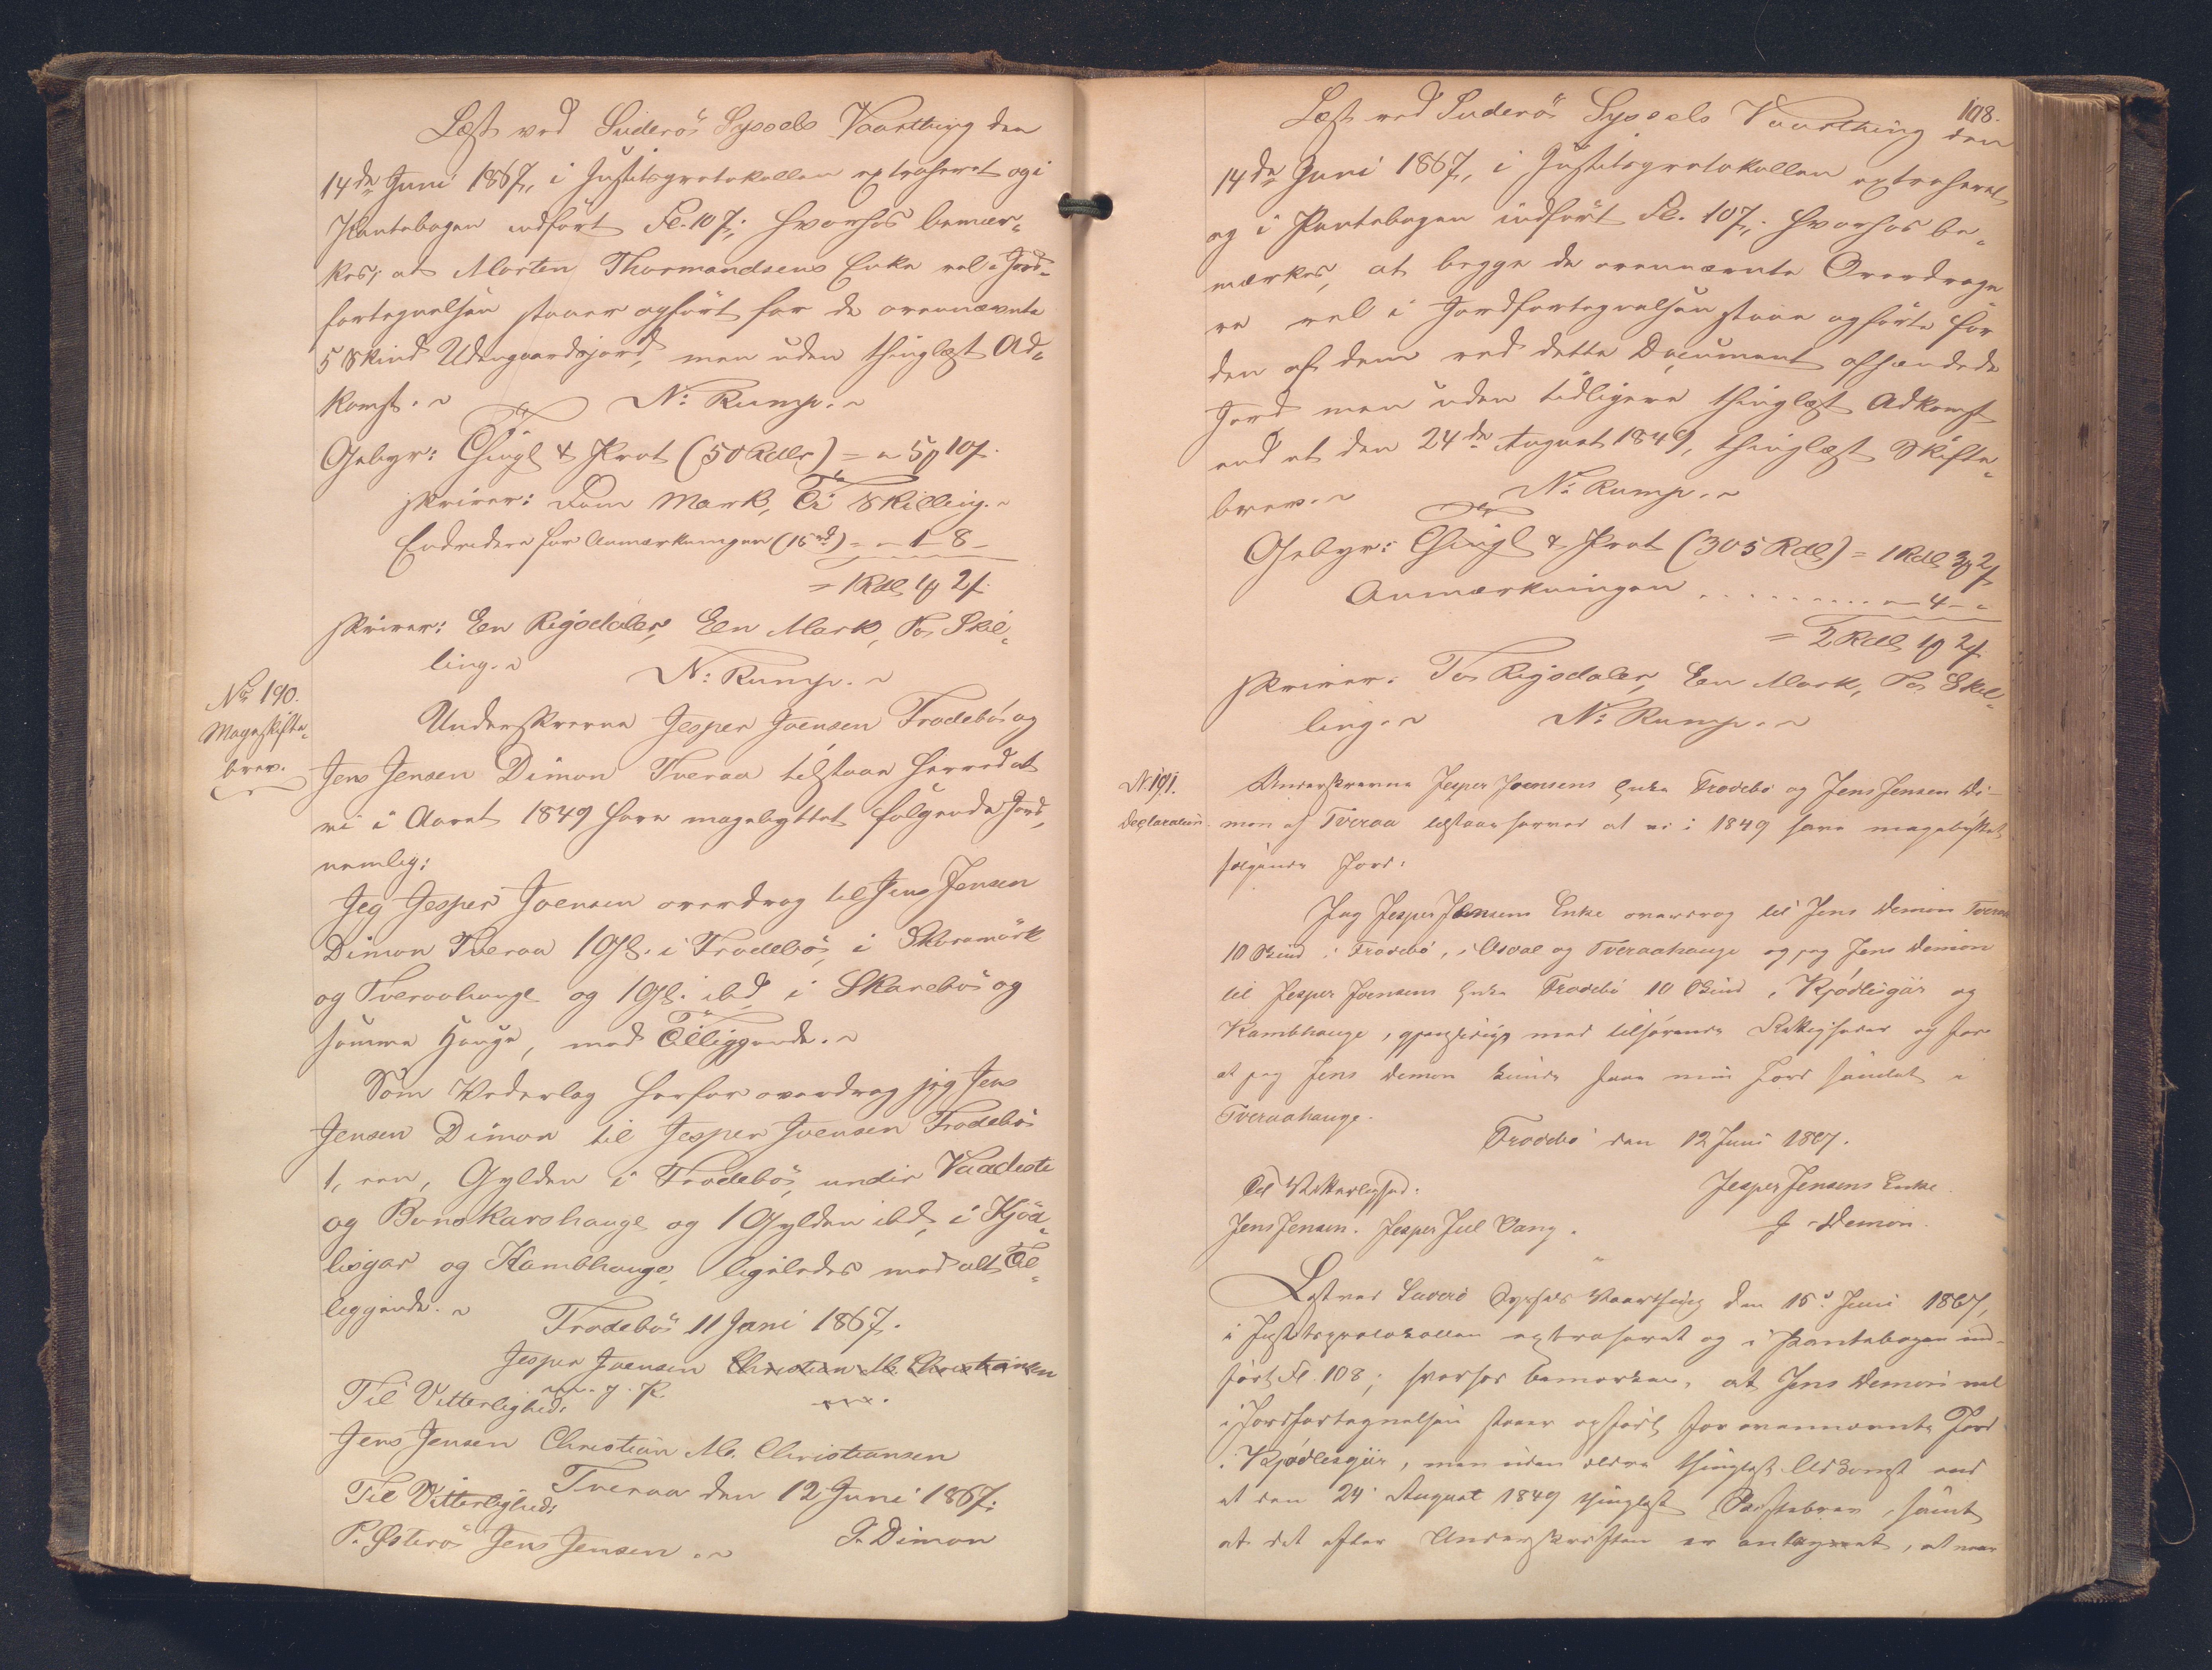 Læst ved Suderös Syssels Vaarthing den
14de Juni 1867, i Justitsprotokollen extraheret og i
Pantebogen indført Fol. 107; hvorhos bemær-
kes, at Morten Thormandsens Enke vel i Jord-
fortegnelsen staaer opført for de ovennævnte
5 Skind Udengaardsjord, men uden thinglæst Ad-
komst.
N: Rump.
Gebyr: Thingl & Prot (50 Rdlr) = " 5 10
skriver: Fem Mark, Ti Skilling.
Endvidere for Anmærkningen (15) = " 1 - 8 -
= 1 Rdl 1 2
skriver: Een Rigsdaler, Een Mark, To Skil-
ling.
N: Rump.
No 190.
Mageskifte-
brev.
Underskrevne Jesper Joensen Frodebö og
Jens Jensen Dimon Tveraa tilstaae herved at
vi i Aaret 1849 have magebyttet følgende Jord,
nemlig:
Jeg Jesper Joensen overdrog til Jens Jensen
Dimon Tveraa 1 Gl. i Frodebö, i Skoramörk
og Tveraahauge og 1 Gl. ibd i Skarebö og
samme Hauge, med Tilliggende.
Som Vederlag herfor overdrog jeg Jens
Jensen Dimon til Jesper Joensen Frodebö
1, een, Gylden i Frodebö, under Vaadeste
og Bunskarshauge og 1 Gylden ibd, i Kjöd-
lisgar og Kambhauge, ligeledes med alt Til-
liggende.
Frodebö 11 Juni 1867.
Jesper Joensen Christian M. Christiansen
m. f. P.
Til Vitterlighed:
Jens Jensen Christian M. Christiansen
Tveraa den 12 Juni 1867.
Til Vitterlighed:
P. Østerö Jens Jensen
J. Dimon
108.
Læst ved Suderös Syssels Vaarthing den
14de Juni 1867, i Justitsprotokollen extraheret
og i Pantebogen indført Fol. 107; hvorhos be-
mærkes, at begge de ovennævnte Overdrage
re vel i Jordfortegnelsen staae opførte for
den af dem ved dette Document afhændede
Jord men uden tidligere thinglæst Adkomst
end et den 24de August 1849, thinglæst Skifte-
brev.
N: Rump.
Gebyr: Thingl & Prot (305 Rdl) = 1 Rdl 3 2
Anmærkningen . . . . . . . . . " - 4 - "
= 2 Rdl 1 2
skriver: To Rigsdaler, Een Mark, To Skil-
ling.
N: Rump.
N. 191.
Declaration.
Underskrevne Jesper Joensens Enke Frodebö og Jens Jensen Di-
mon af Tveraa tilstaae herved at vi i 1849 have magebyttet
følgende Jord:
Jeg Jesper Joensens Enke overdrog til Jens Demon Tveraa
10 Skind i Frodebö, i Asdal og Tveraahauge og jeg Jens Demon
til Jesper Joensens Enke Frodebö 10 Skind i Kjödlisgär og
Kambhauge, gjensidigt med tilhørende Rettigheder og for
at jeg Jens Demon kunde faae min Jord samlet i
Tveraahauge.
Frodebö den 12 Juni 1867.
Til Vitterlighed:
Jesper Jensens Enke
Jens Jensen. Jesper Juul Vang.
J Demon.
Læst ved Suderö Syssels Vaarthing den 15. Juni 1867,
i Justitsprotokollen extraheret og i Pantebogen ind-
ført Fl. 108; hvorhos bemærkes, at Jens Demon vel
i Jordfortegnelsen staaer opført for ovennævnte Jord
i Kjødlesgjär, men uden ældre thinglæst Adkomst end
et den 24. August 1849 thinglæst Skiftebrev, samt
at det efter Underskriften er antegnet, at man